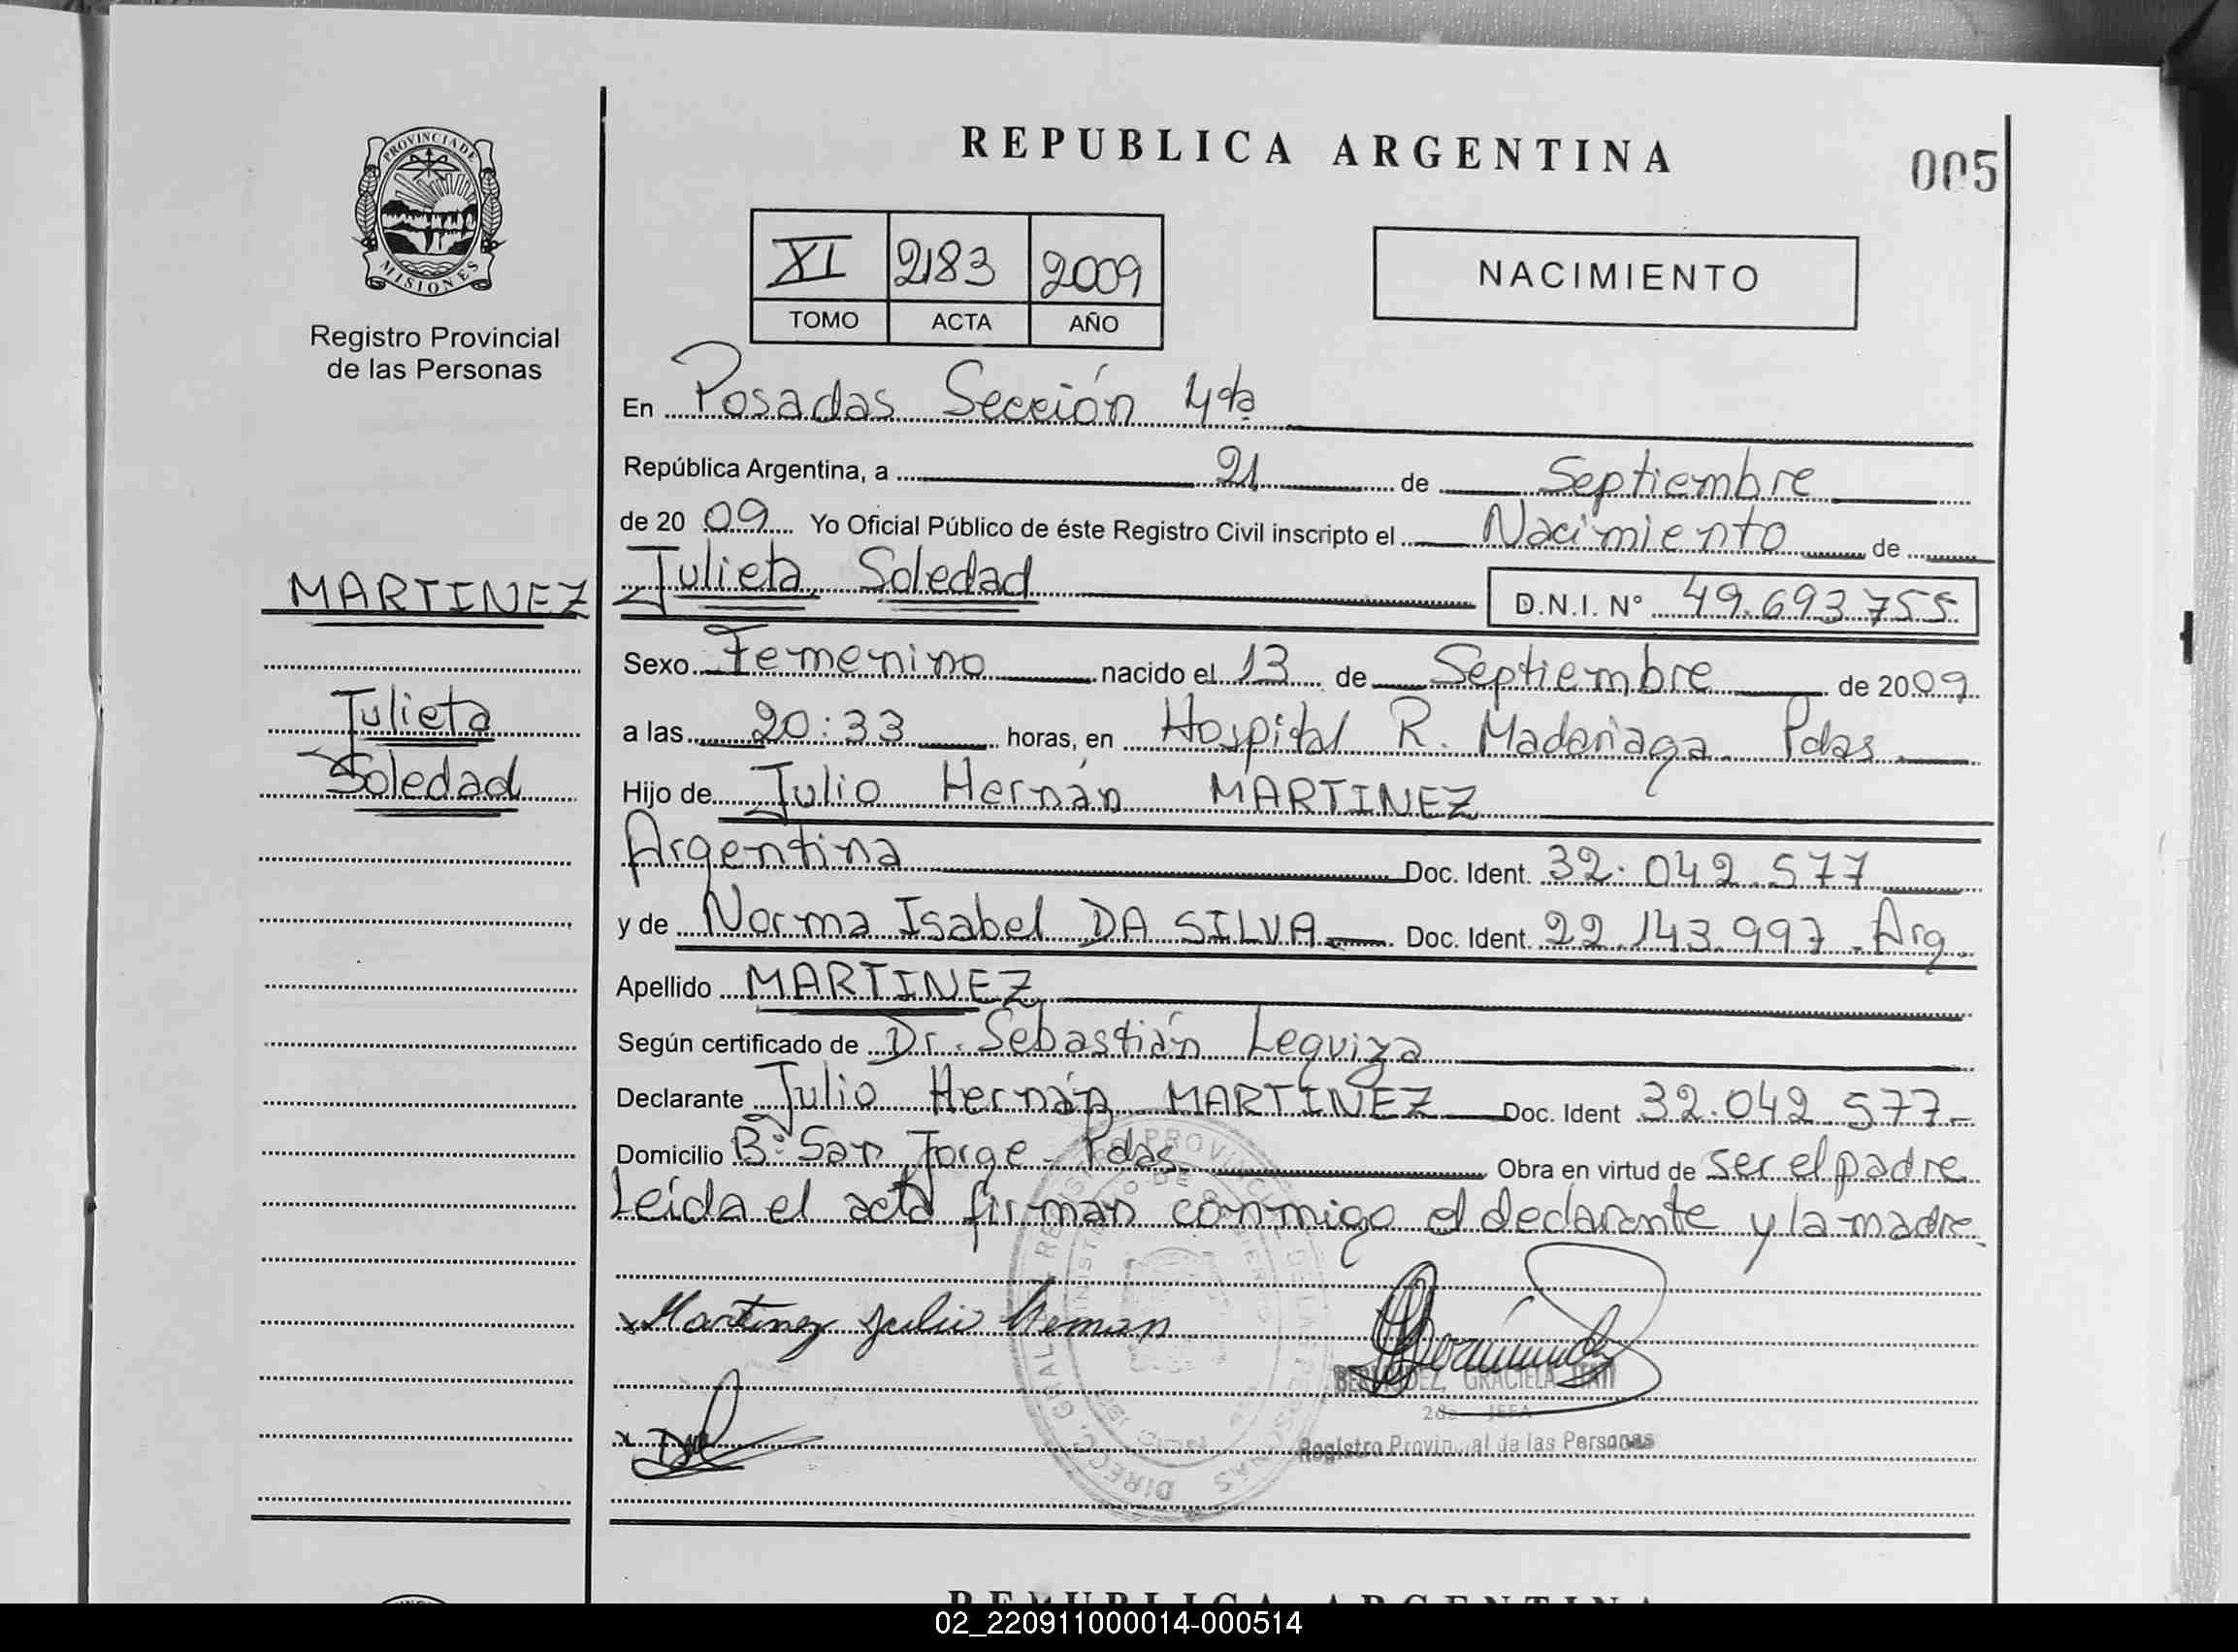 REPUBLICA ARGENTINA
005
PROVINCIA DE
MISIONES
Registro Provincial
de las Personas
XI 2183 2009
TOMO ACTA AÑO
NACIMIENTO
En Posadas Sección 4ta
República Argentina, a 21 de Septiembre
de 2009 Yo Oficial Público de éste Registro Civil inscripto el Nacimiento de
MARTINEZ
Julieta Soledad
D.N.I. N° 49.693.755
Sexo Femenino nacido el 13 de Septiembre de 2009
Julieta
Soledad
a las 20:33 horas, en Hospital R. Madariaga Pdas
Hijo de Julio Hernán MARTINEZ
Argentina Doc. Ident. 32.042.577
y de Norma Isabel DA SILVA Doc. Ident. 22.143.997 - Arg.
Apellido MARTINEZ
Según certificado de Dr. Sebastián Leguiza
Declarante Julio Hernán MARTINEZ Doc. Ident 32.042.577-
Domicilio B° San Jorge - Pdas. Obra en virtud de ser el padre
Leída el acta firman conmigo el declarante y la madre.
x Martinez Julio Hernan
BERMUDEZ, GRACIELA
2da JEFA
Registro Provincial de las Personas
x
REPUBLICA ARGENTINA
02_220911000014-000514